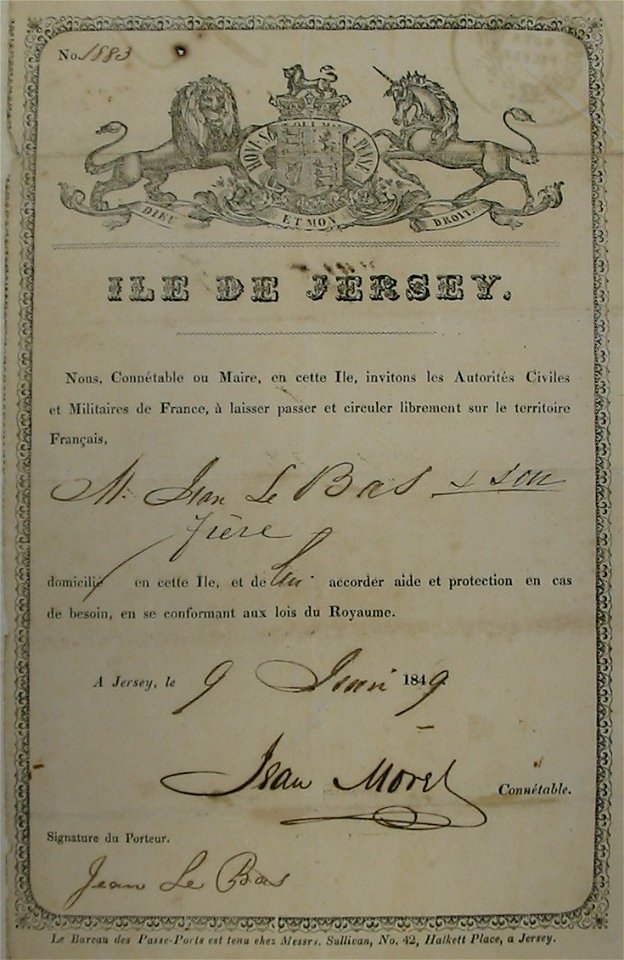 No. 1883
HONI SOIT QUI MAL Y PENSE
DIEU ET MON DROIT.
ILE DE JERSEY.
Nous, Connétable ou Maire, en cette Ile, invitons les Autorités Civiles
et Militaires de France, à laisser passer et circuler librement sur le territoire
Français,
M. Jean Le Bas & son
frère
domicilié en cette Île, et de lui accorder aide et protection en cas
de besoin, en se conformant aux lois du Royaume.
A Jersey, le 9 Juin 1849
Jean Morel Connétable.
Signature du Porteur.
Jean Le Bas
Le Bureau des Passe-Ports est tenu chez Messrs. Sullivan, No. 42, Halkett Place, a Jersey.